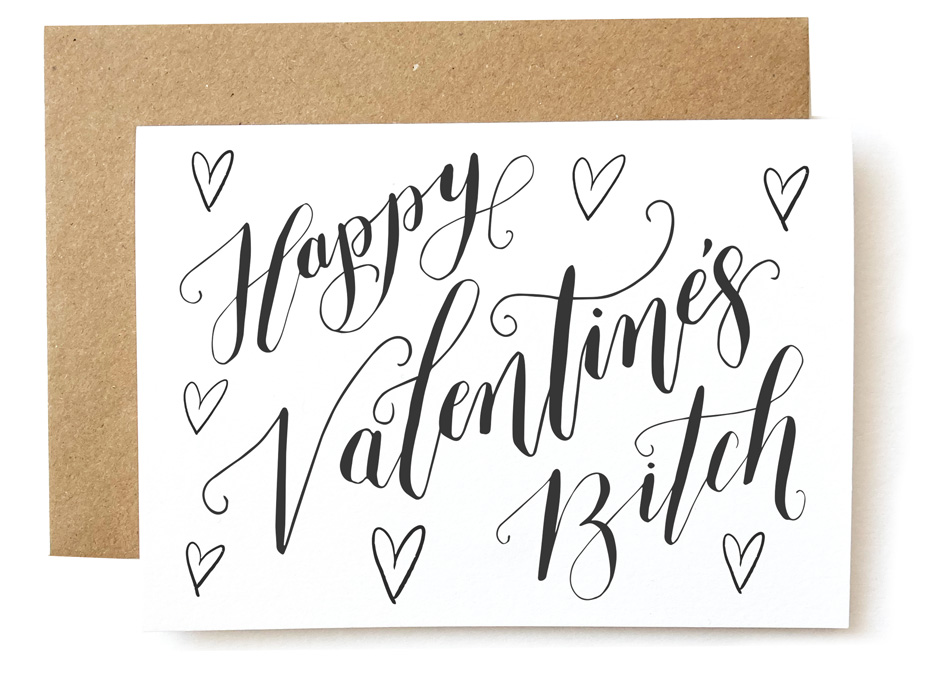 Happy
Valentine's
Bitch